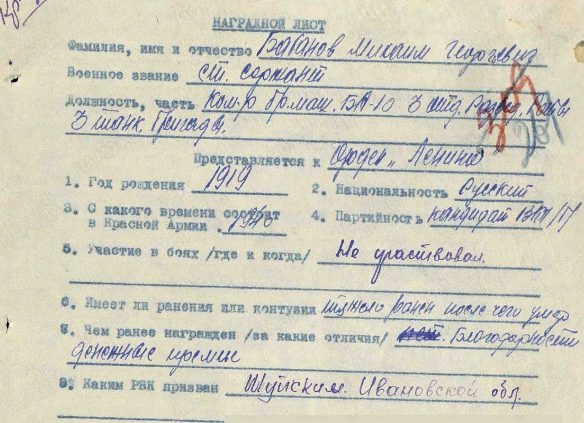 НАГРАДНОЙ ЛИСТ
Фамилия, имя и отчество Бабанов Михаил Георгиевич
Военное звание ст. сержант
Должность, часть Ком-р бр.маш. БА-10 3 отд. Развед. Роты
3 танк. бригады.
Представляется к Орден „Ленина
1. Год рождения 1919 2. Национальность Русский
3. С какого времени состоит
в Красной Армии . 1940 4. Партийность кандидат ВКП/б/
5. Участие в боях /где и когда/ Не участвовал.
6. Имеет ли ранения или контузии тяжело ранен после чего умер
7. Чем ранее награжден /за какие отличия/ нет. Благодарности
денежные премии
9. Каким РВК призван Шуйским. Ивановской обл.